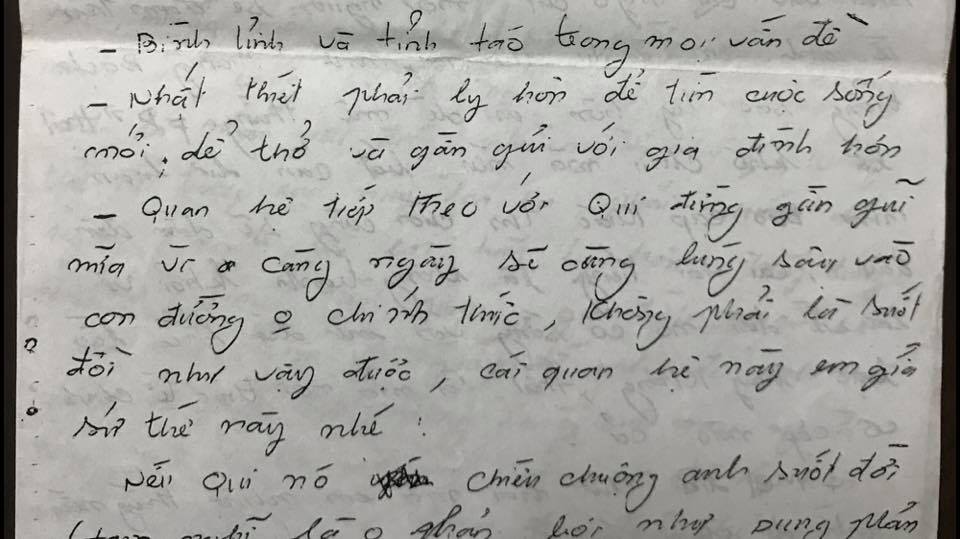 - Bình tĩnh và tỉnh táo trong mọi vấn đề
- Nhất thiết phải ly hôn để tìm cuộc sống
mới, dễ thở và gần gũi với gia đình hơn
- Quan hệ tiếp theo với Quí đừng gần gũi
nữa vì càng ngày sẽ càng lún sâu vào
con đường o chính thức, không phải là suốt
đời như vậy được, cái quan hệ này em giả
sử thế này nhé :
Nếu Quí nó chiều chuộng anh suốt đời
là o phản bội như Dung